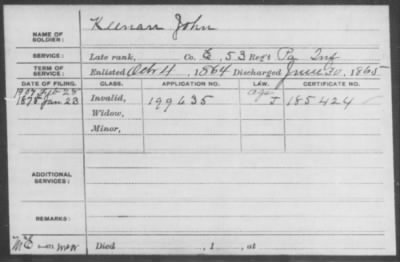 Keenan John
NAME OF
SOLDIER:
SERVICE: Late rank, Co. E, 53 Reg't Pa Inf
TERM OF
SERVICE: Enlisted Oct 4, 1864 Discharged June 30, 1865
DATE OF FILING. CLASS. APPLICATION NO. LAW. CERTIFICATE NO.
1907 Sept 28 age
1878 Jan 23 Invalid, 199635 J 185424
Widow,
Minor,
ADDITIONAL
SERVICES:
REMARKS:
Died , 1 , at